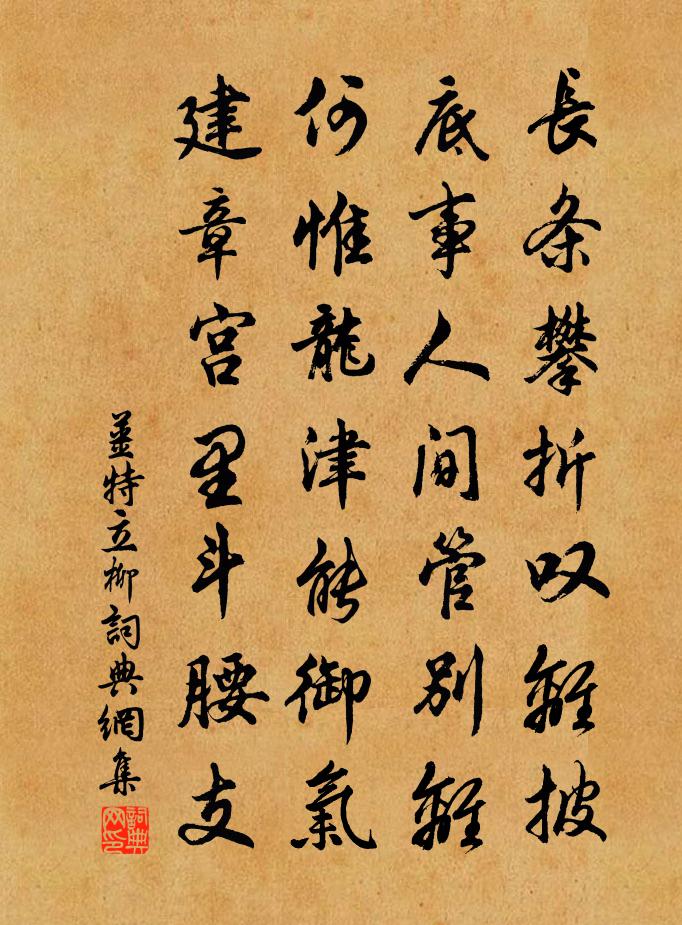 長条攀折叹離披
底事人间管别離
何惟龍津能御氣
建章宫里斗腰支
姜特立柳詞典網集
詞典网印